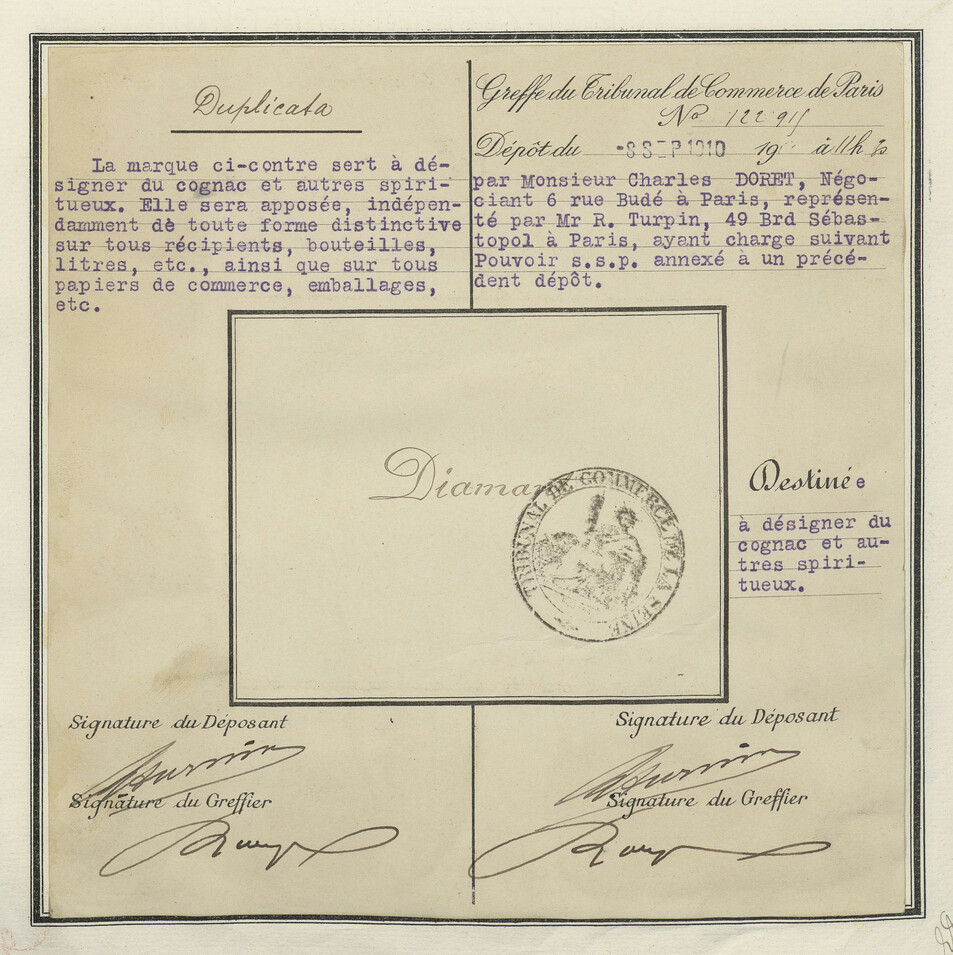 Duplicata
La marque ci-contre sert à dé-
signer du cognac et autres spiri-
tueux. Elle sera apposée, indépen-
damment de toute forme distinctive
sur tous récipients, bouteilles,
litres, etc., ainsi que sur tous
papiers de commerce, emballages,
etc.
Greffe du Tribunal de Commerce de Paris
No 122 915
Dépôt du -8 SEP 1910 19 à 11h
par Monsieur Charles DORET, Négo-
ciant 6 rue Budé à Paris, représen-
té par Mr R. Turpin, 49 Brd Sébas-
topol à Paris, ayant charge suivant
Pouvoir s.s.p. annexé à un précé-
dent dépôt.
Diamant
TRIBUNAL DE COMMERCE DE LA SEINE
Destinée
à désigner du
cognac et au-
tres spiri-
tueux.
Signature du Déposant
Signature du Greffier
Signature du Déposant
Signature du Greffier